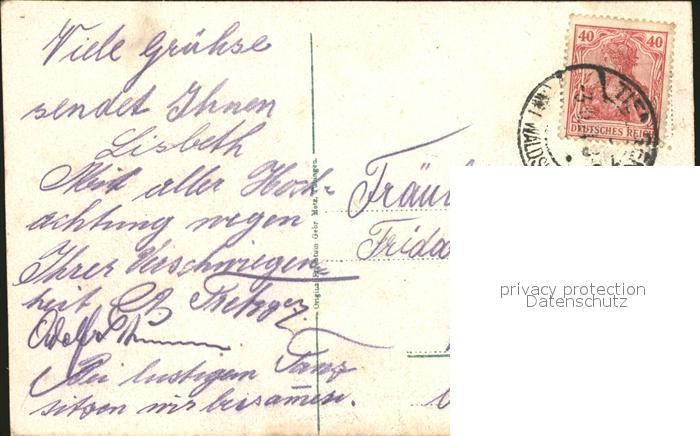 Viele Grühse
sendet Ihnen
Lisbeth
Mit aller Hoch-
achtung wegen
Ihrer Verschwiegen=
heit
Adolf
Bei lustigem Tanz
sitzen wir beisammen.
Original-Eigentum Gebr. Metz, Tübingen.
40 40
DEUTSCHES REICH
Fräul
Frida
privacy protection
Datenschutz